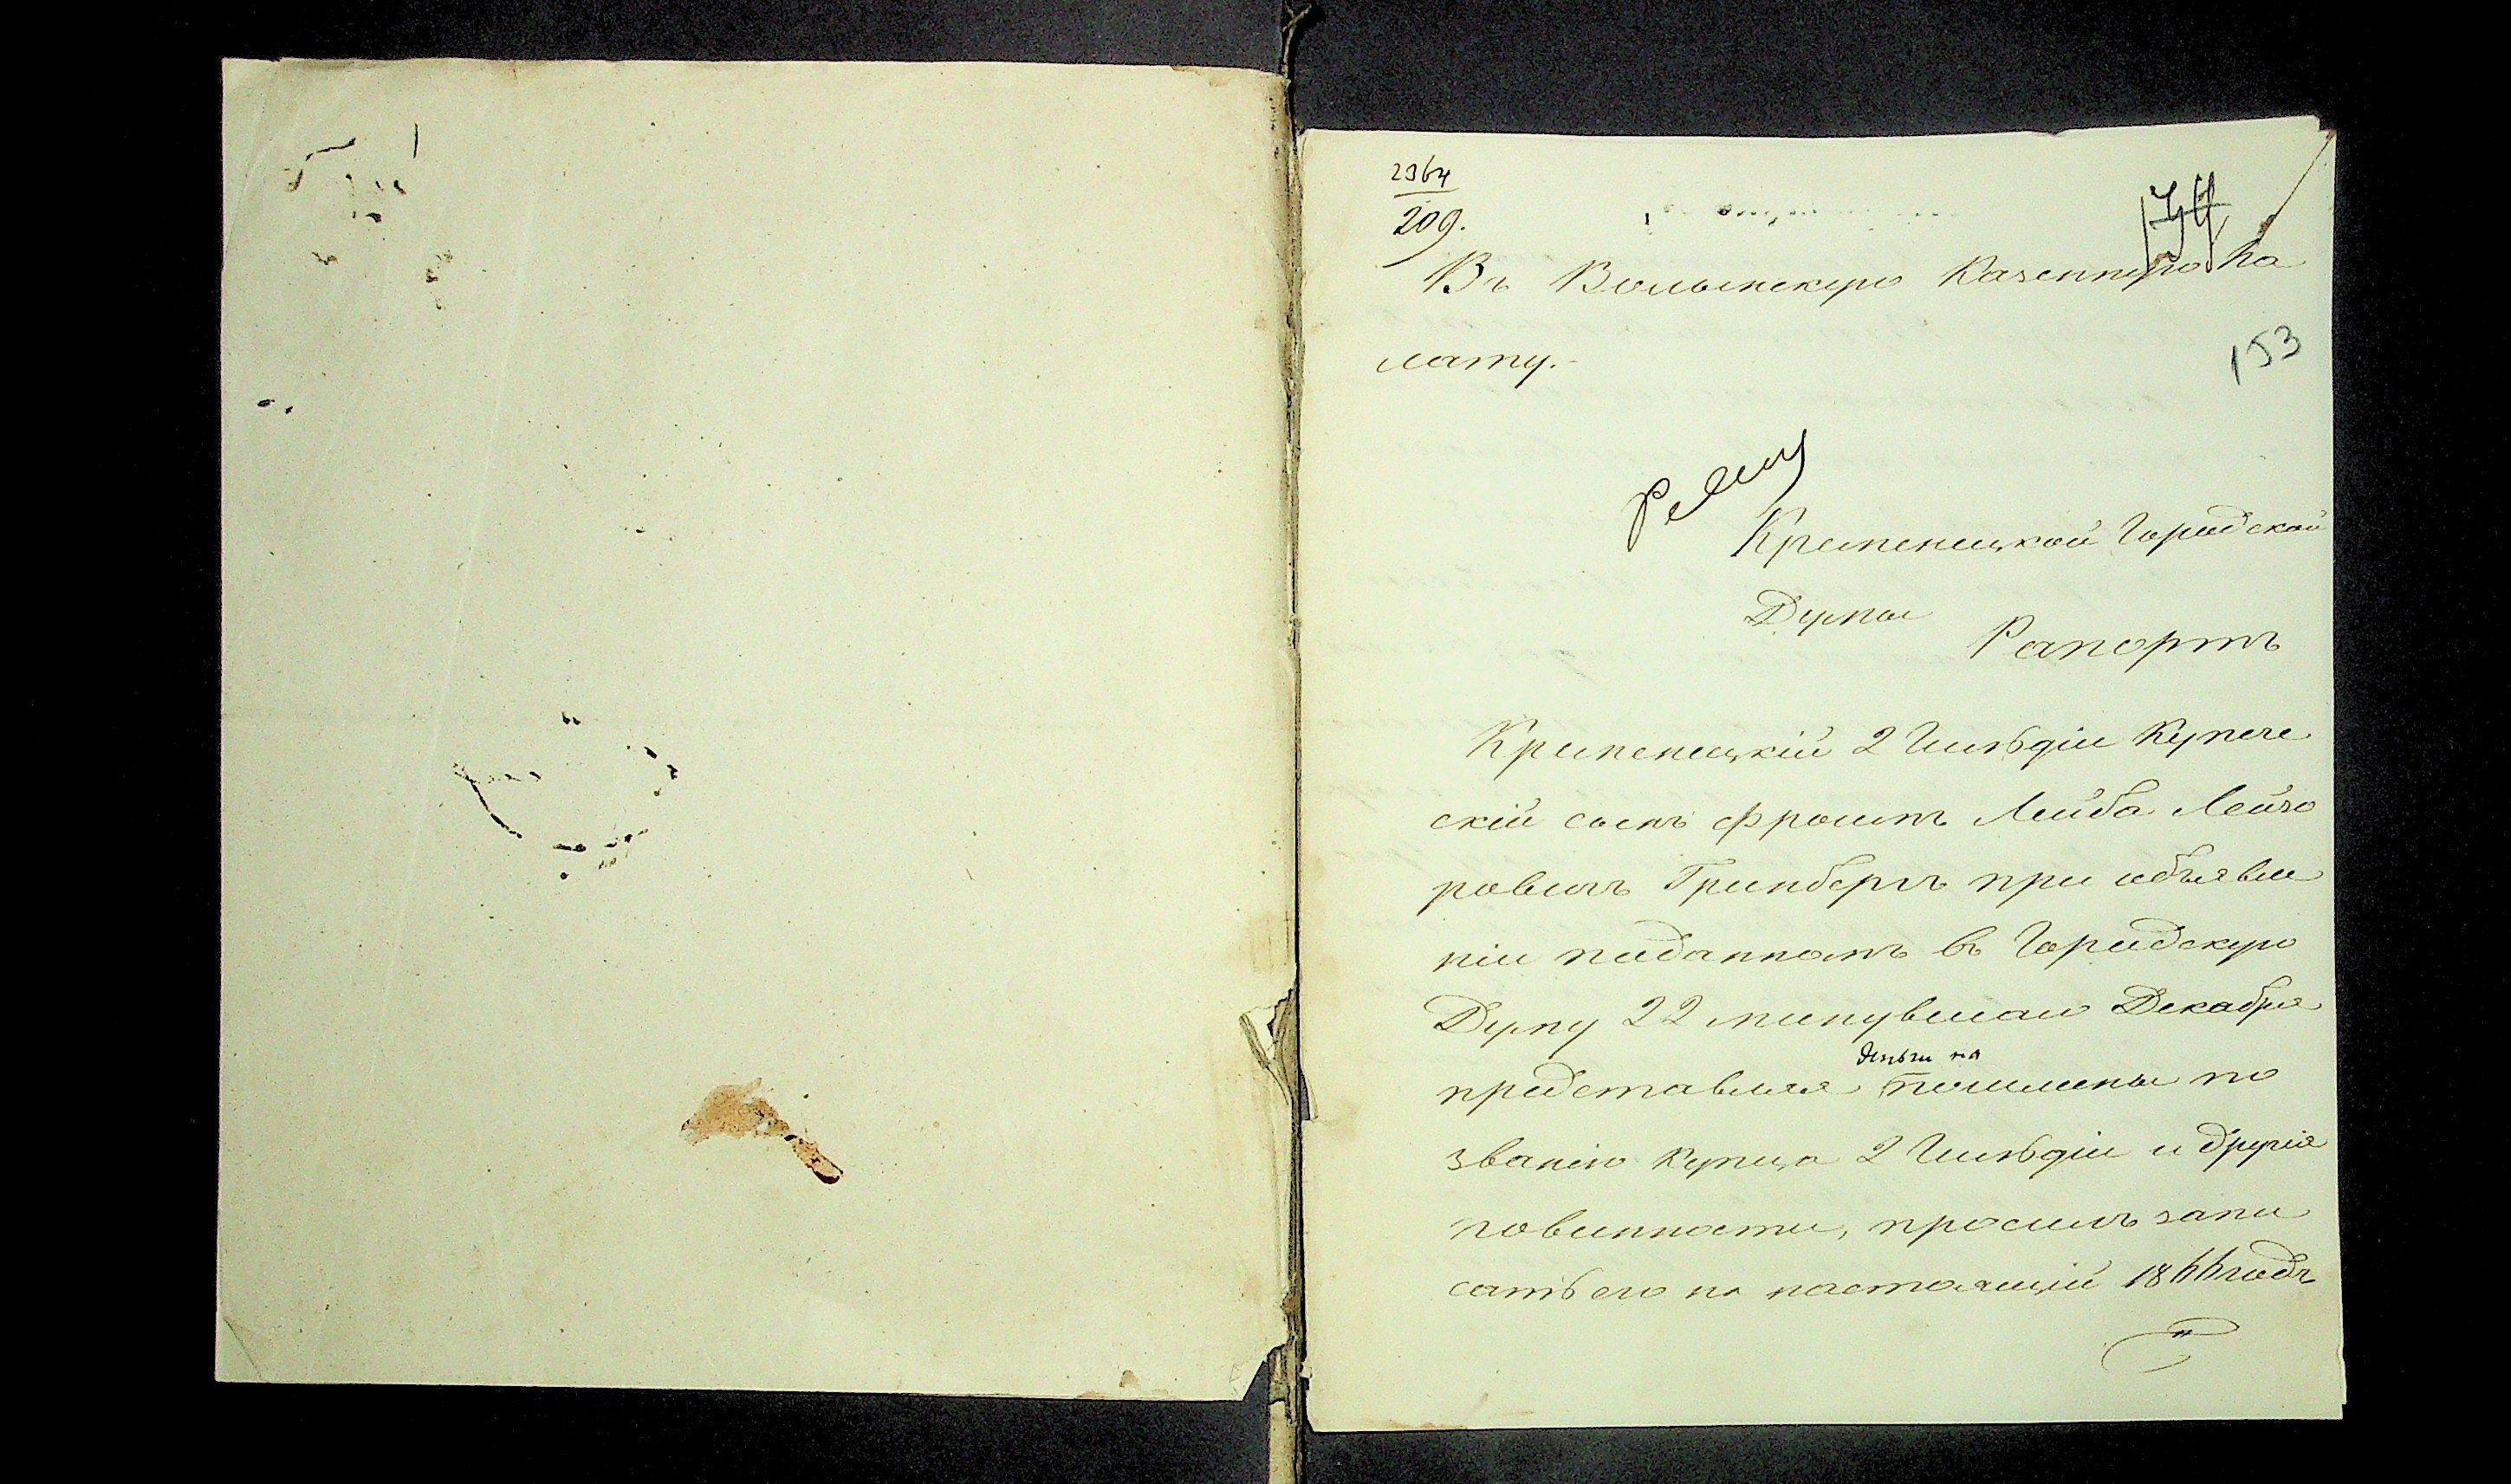 2964
209.
Въ Волынскую Казенную Па
лату.-
153
Кременецкой Городской
Думы
Рапортъ
Кременецкій 2 Гильдіи Купече
скій сынъ Фроимъ Лейба Лейзо
ровичъ Гринбергъ при объявле
ніи поданномъ въ Городскую
Думу 22 минувшаго Декабря
деньги на
представляя пошлины по
званію Купца 2 Гильдіи и другія
повинности, просилъ запи
сать его на настоящій 1866 годъ